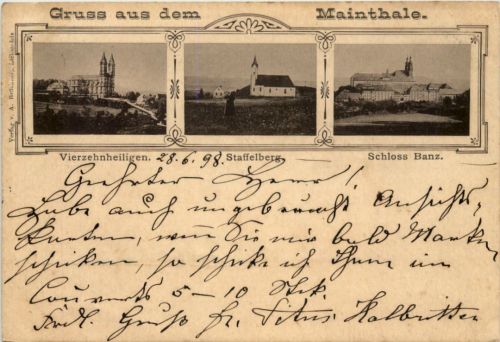 Gruss aus dem Mainthale.
Vierzehnheiligen. 28.6.98. Staffelberg. Schloss Banz.
Geehrter Herr!
Habe auch ungebraucht Ansichts-
karten, wenn Sie mir bald Marken
schicken, so schicke ich Ihnen im
Couverts 5 – 10 Stck.
Frdl. Gruß fr. Titus Halbritter